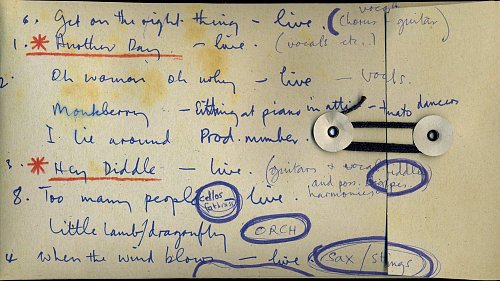 6. Get on the right thing – live. (vocals chorus guitar)
1. * Another Day – live. (vocals etc.)
2. Oh woman oh why – live – vocls.
Monkberry – sitting at piano in attic – + dancers
I lie around Prod. number.
3. * Hey Diddle – live. (guitars + vocal fiddle
and poss. harmonies
8. Too many people cellos live.
Little Lamb/dragonfly ORCH
4 when the wind blows – live (sax/strings